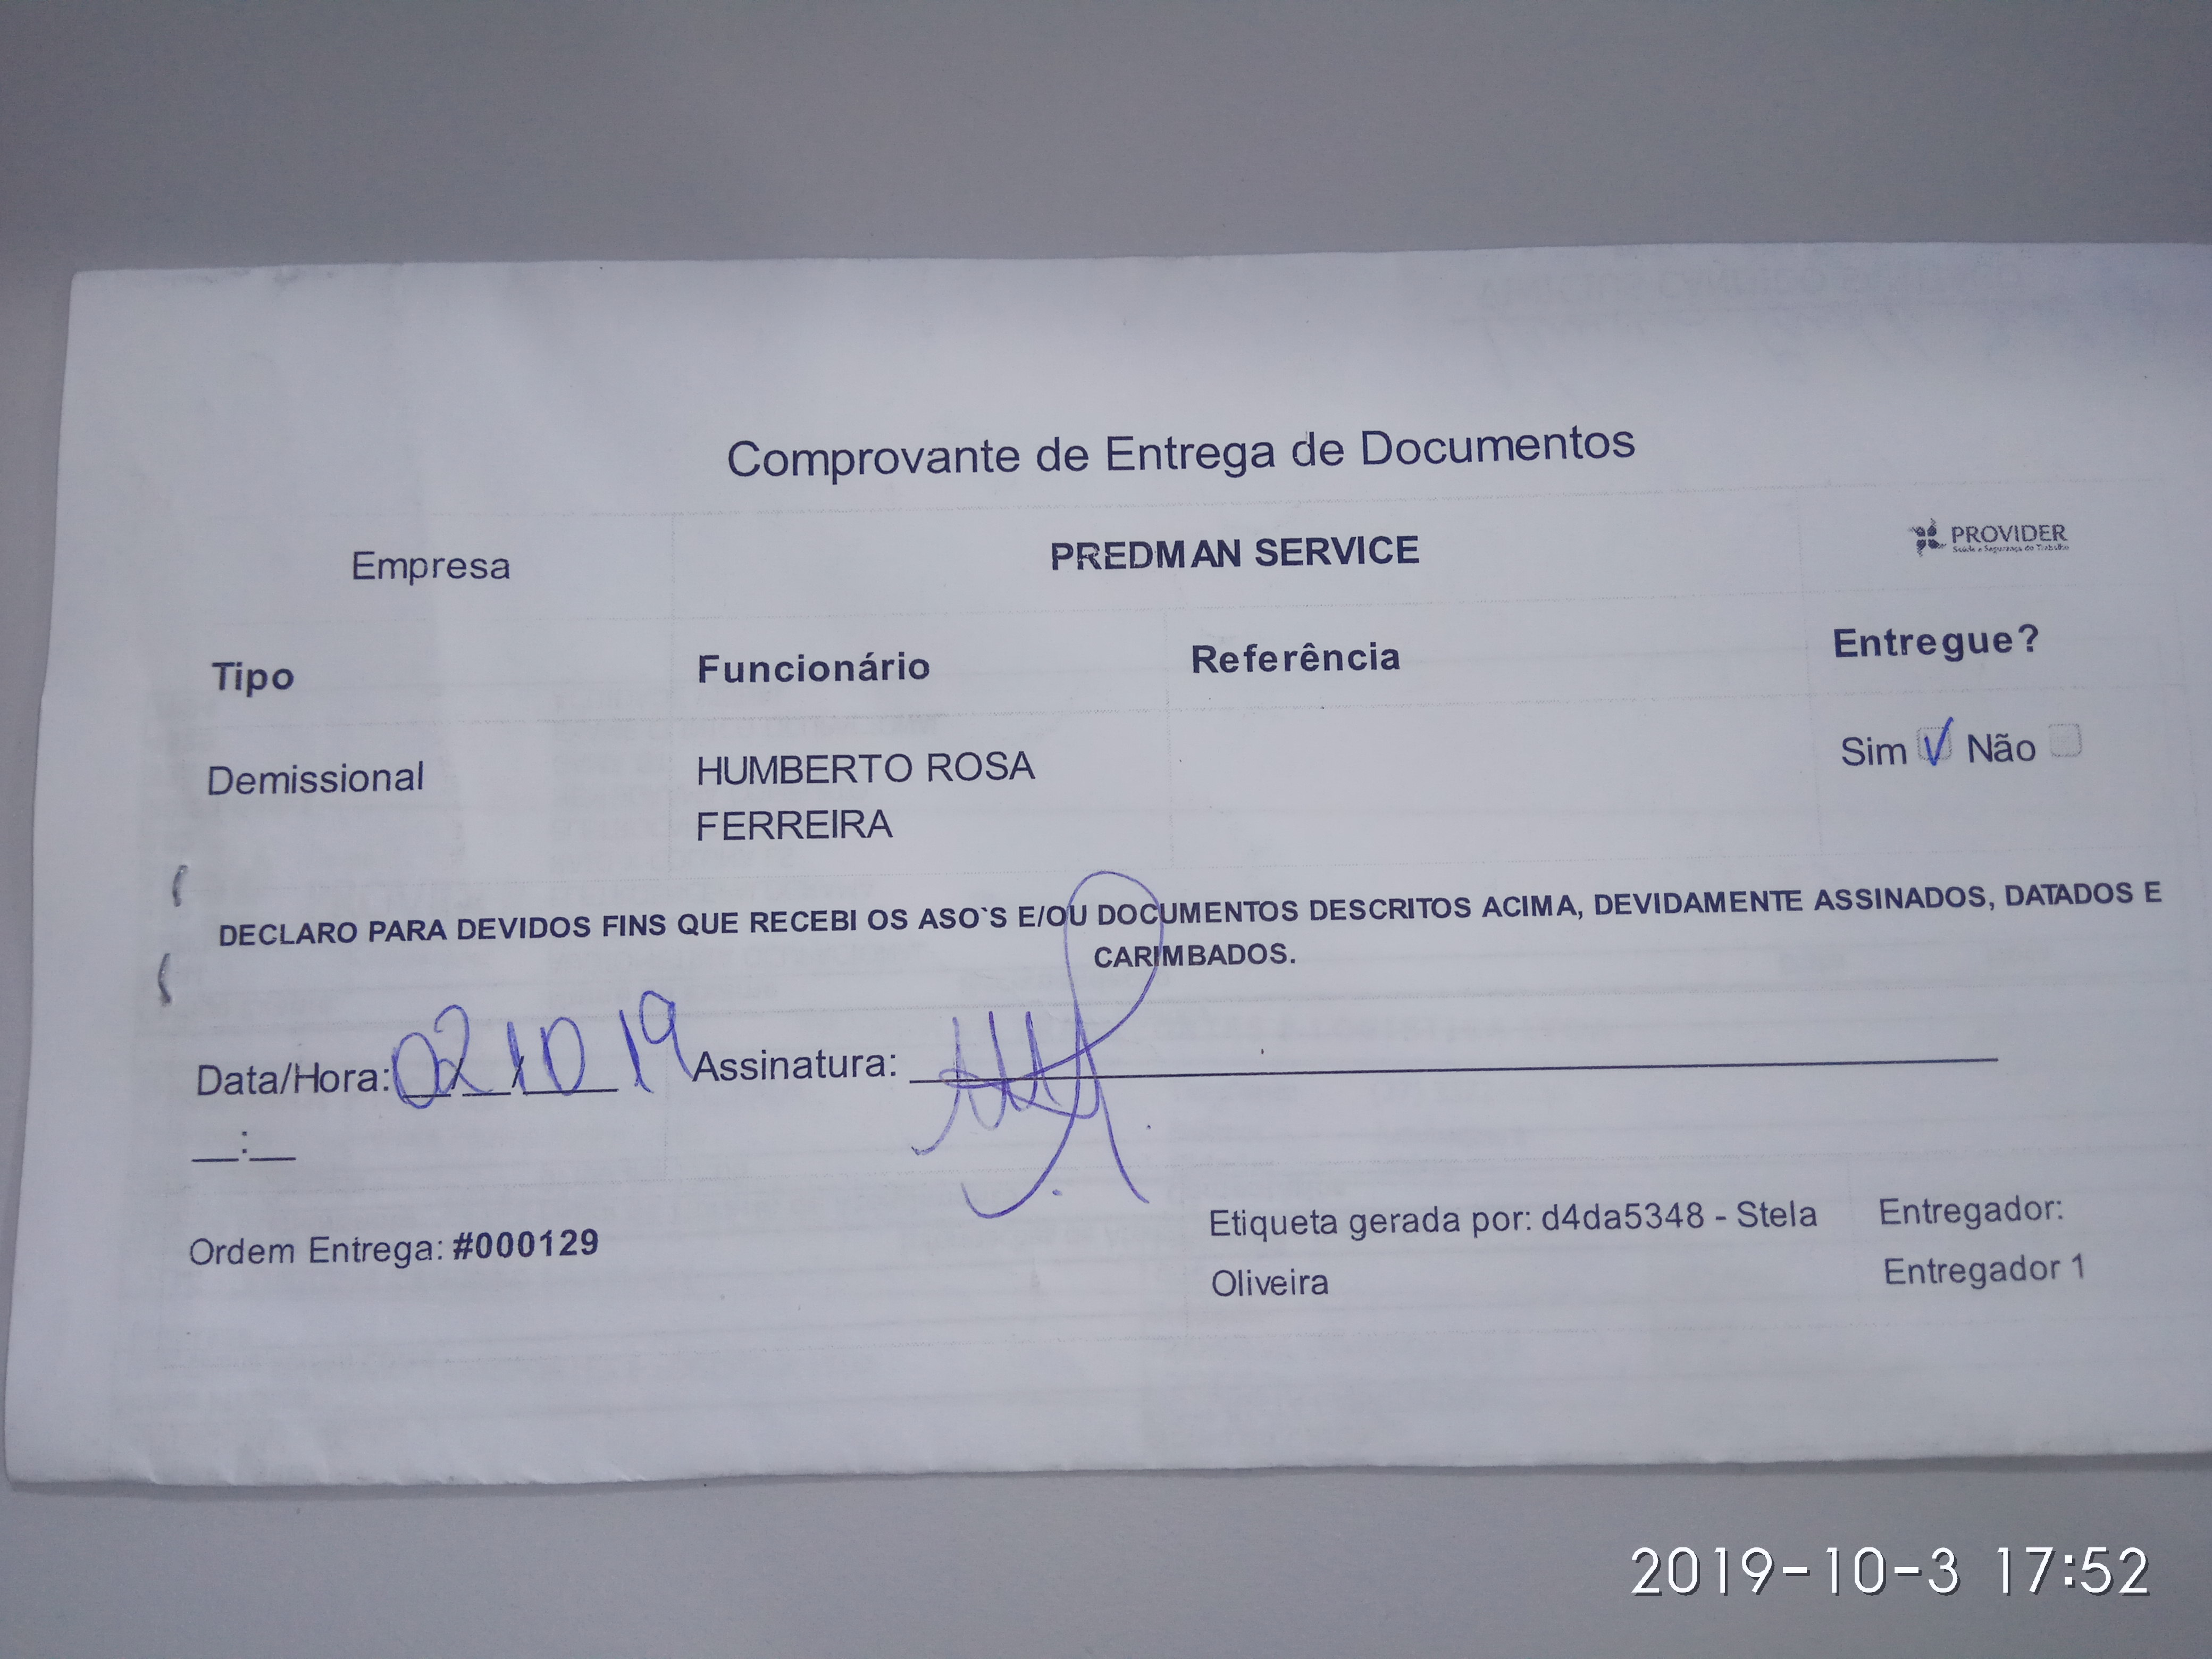 Comprovante de Entrega de Documentos
Empresa PREDMAN SERVICE PROVIDER
Saúde e Segurança do Trabalho
Tipo Funcionário Referência Entregue?
Demissional HUMBERTO ROSA Sim Não
FERREIRA
DECLARO PARA DEVIDOS FINS QUE RECEBI OS ASO`S E/OU DOCUMENTOS DESCRITOS ACIMA, DEVIDAMENTE ASSINADOS, DATADOS E
CARIMBADOS.
Data/Hora: 02/10/19 Assinatura:
__:__
Ordem Entrega: #000129 Etiqueta gerada por: d4da5348 - Stela Entregador:
Oliveira Entregador 1
2019-10-3 17:52